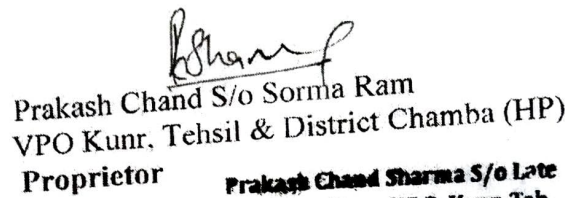 Prakash Chand S/o Sorma Ram
VPO Kunr, Tehsil & District Chamba (HP)
Proprietor
Prakash Chand Sharma S/o Late